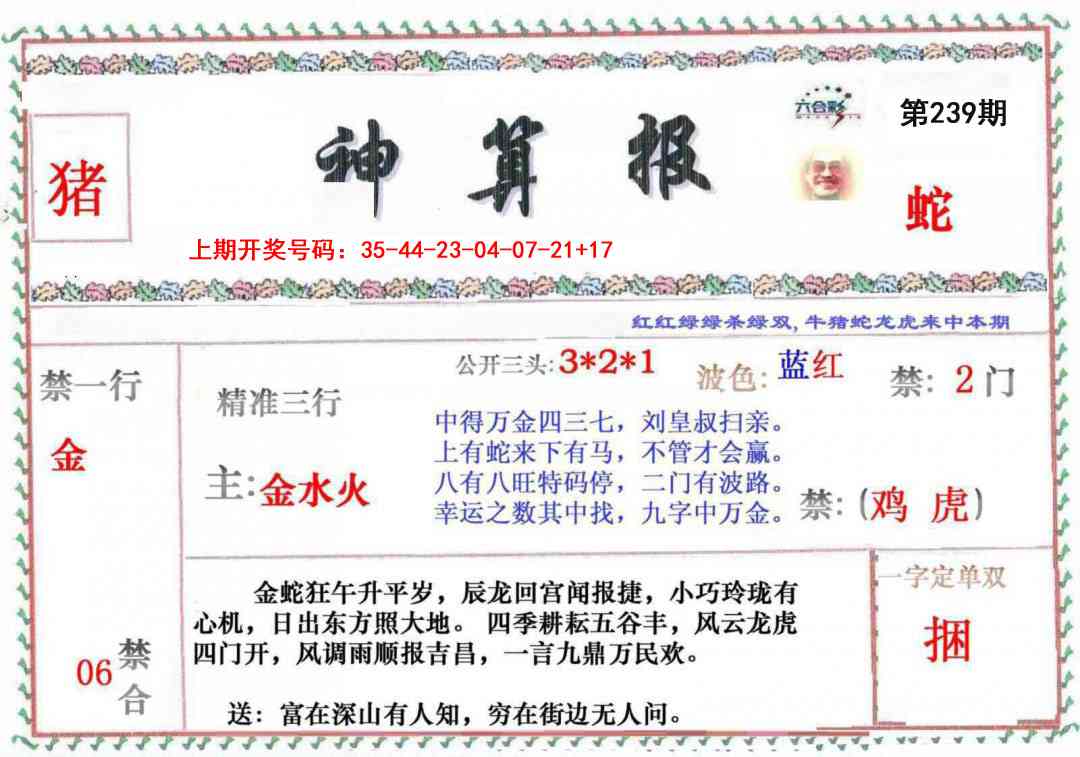 六合彩
第239期
猪
神算报
蛇
上期开奖号码：35-44-23-04-07-21+17
红红绿绿杀绿双,牛猪蛇龙虎来中本期
禁一行
金
精准三行
主:金水火
公开三头:3*2*1
波色:蓝红
禁: 2门
中得万金四三七，刘皇叔扫亲。
上有蛇来下有马，不管才会赢。
八有八旺特码停，二门有波路。
幸运之数其中找，九字中万金。
禁:(鸡 虎)
金蛇狂午升平岁，辰龙回宫闻报捷，小巧玲珑有
心机，日出东方照大地。 四季耕耘五谷丰，风云龙虎
四门开，风调雨顺报吉昌，一言九鼎万民欢。
送：富在深山有人知，穷在街边无人问。
06 禁合
一字定单双
捆